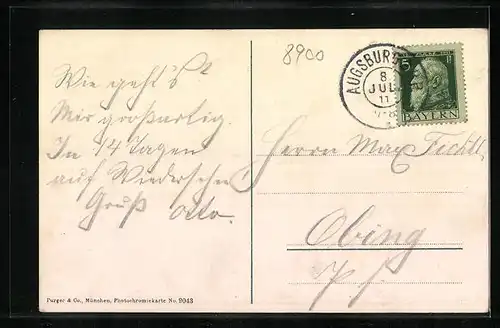 8900
Wie geht's?
Mir großartig.
In 14 Tagen
auf Wiedersehen!
Gruß Otto.
AUGSBURG
8
JUL
11
5
BAYERN
Herrn Max
Obing
Purger & Co., München, Photochromiekarte No. 9043